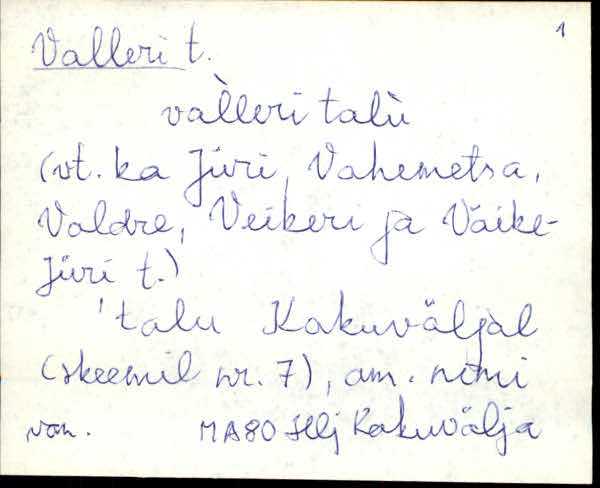 1
Valleri t.
val̀leri talù
(vt. ka Jüri, Vahemetsa,
Valdre, Veikeri ja Väike-
Jüri t.)
'talu Kakuväljal
(skeemil nr. 7), am. nimi
van. MA80 Hlj Kakuvälja